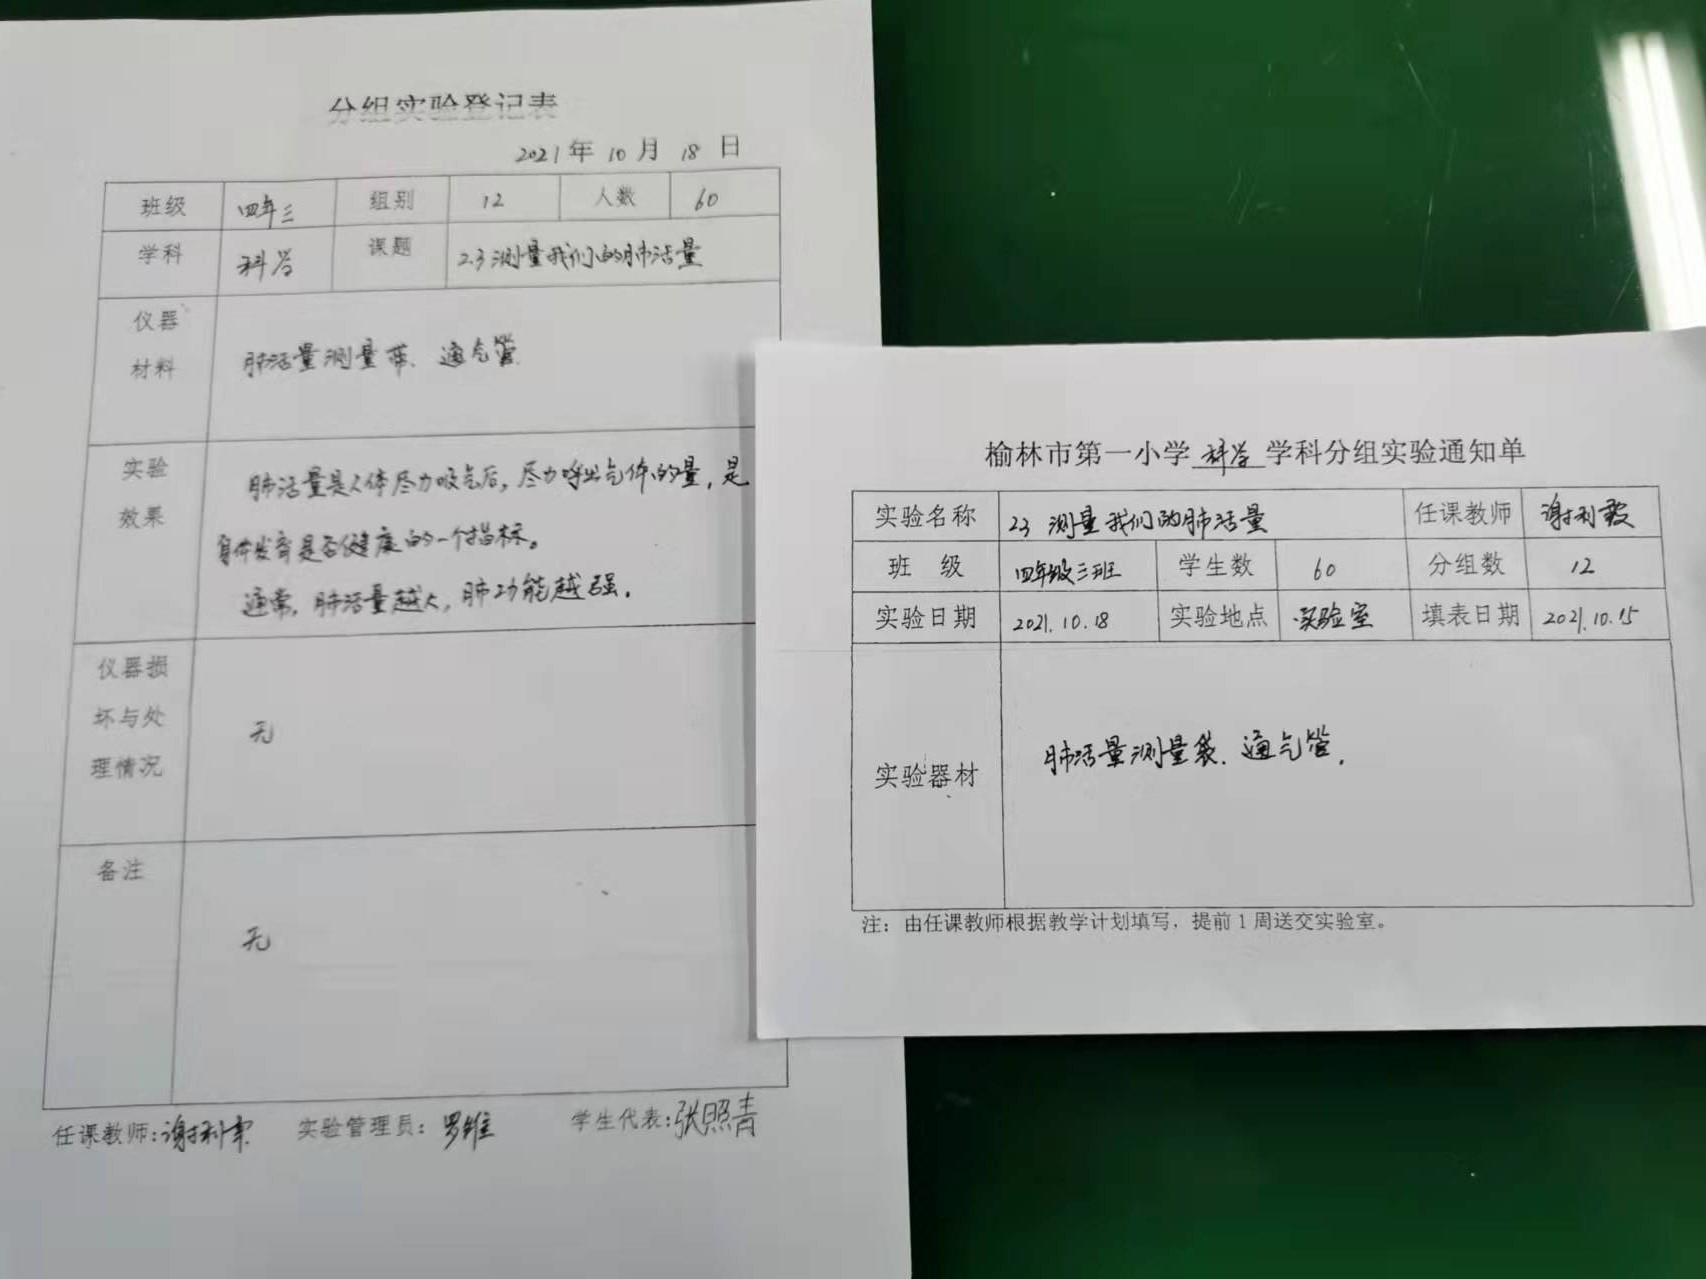 分组实验登记表
2021年 10月 18日
班级 四年三 组别 12 人数 60
学科 科学 课题 2.3 测量我们的肺活量
仪器
材料
肺活量测量带、通气管
实验
效果
肺活量是人体尽力吸气后，尽力呼出气体的量，是
身体发育是否健康的一个指标。
通常，肺活量越大，肺功能越强。
仪器损
坏与处
理情况
无
备注
无
任课教师：谢利 实验管理员：罗维 学生代表：张照青
榆林市第一小学 科学 学科分组实验通知单
实验名称 2.3 测量我们的肺活量 任课教师 谢利
班 级 四年级三班 学生数 60 分组数 12
实验日期 2021.10.18 实验地点 实验室 填表日期 2021.10.15
实验器材 肺活量测量袋、通气管.
注：由任课教师根据教学计划填写，提前1周送交实验室。